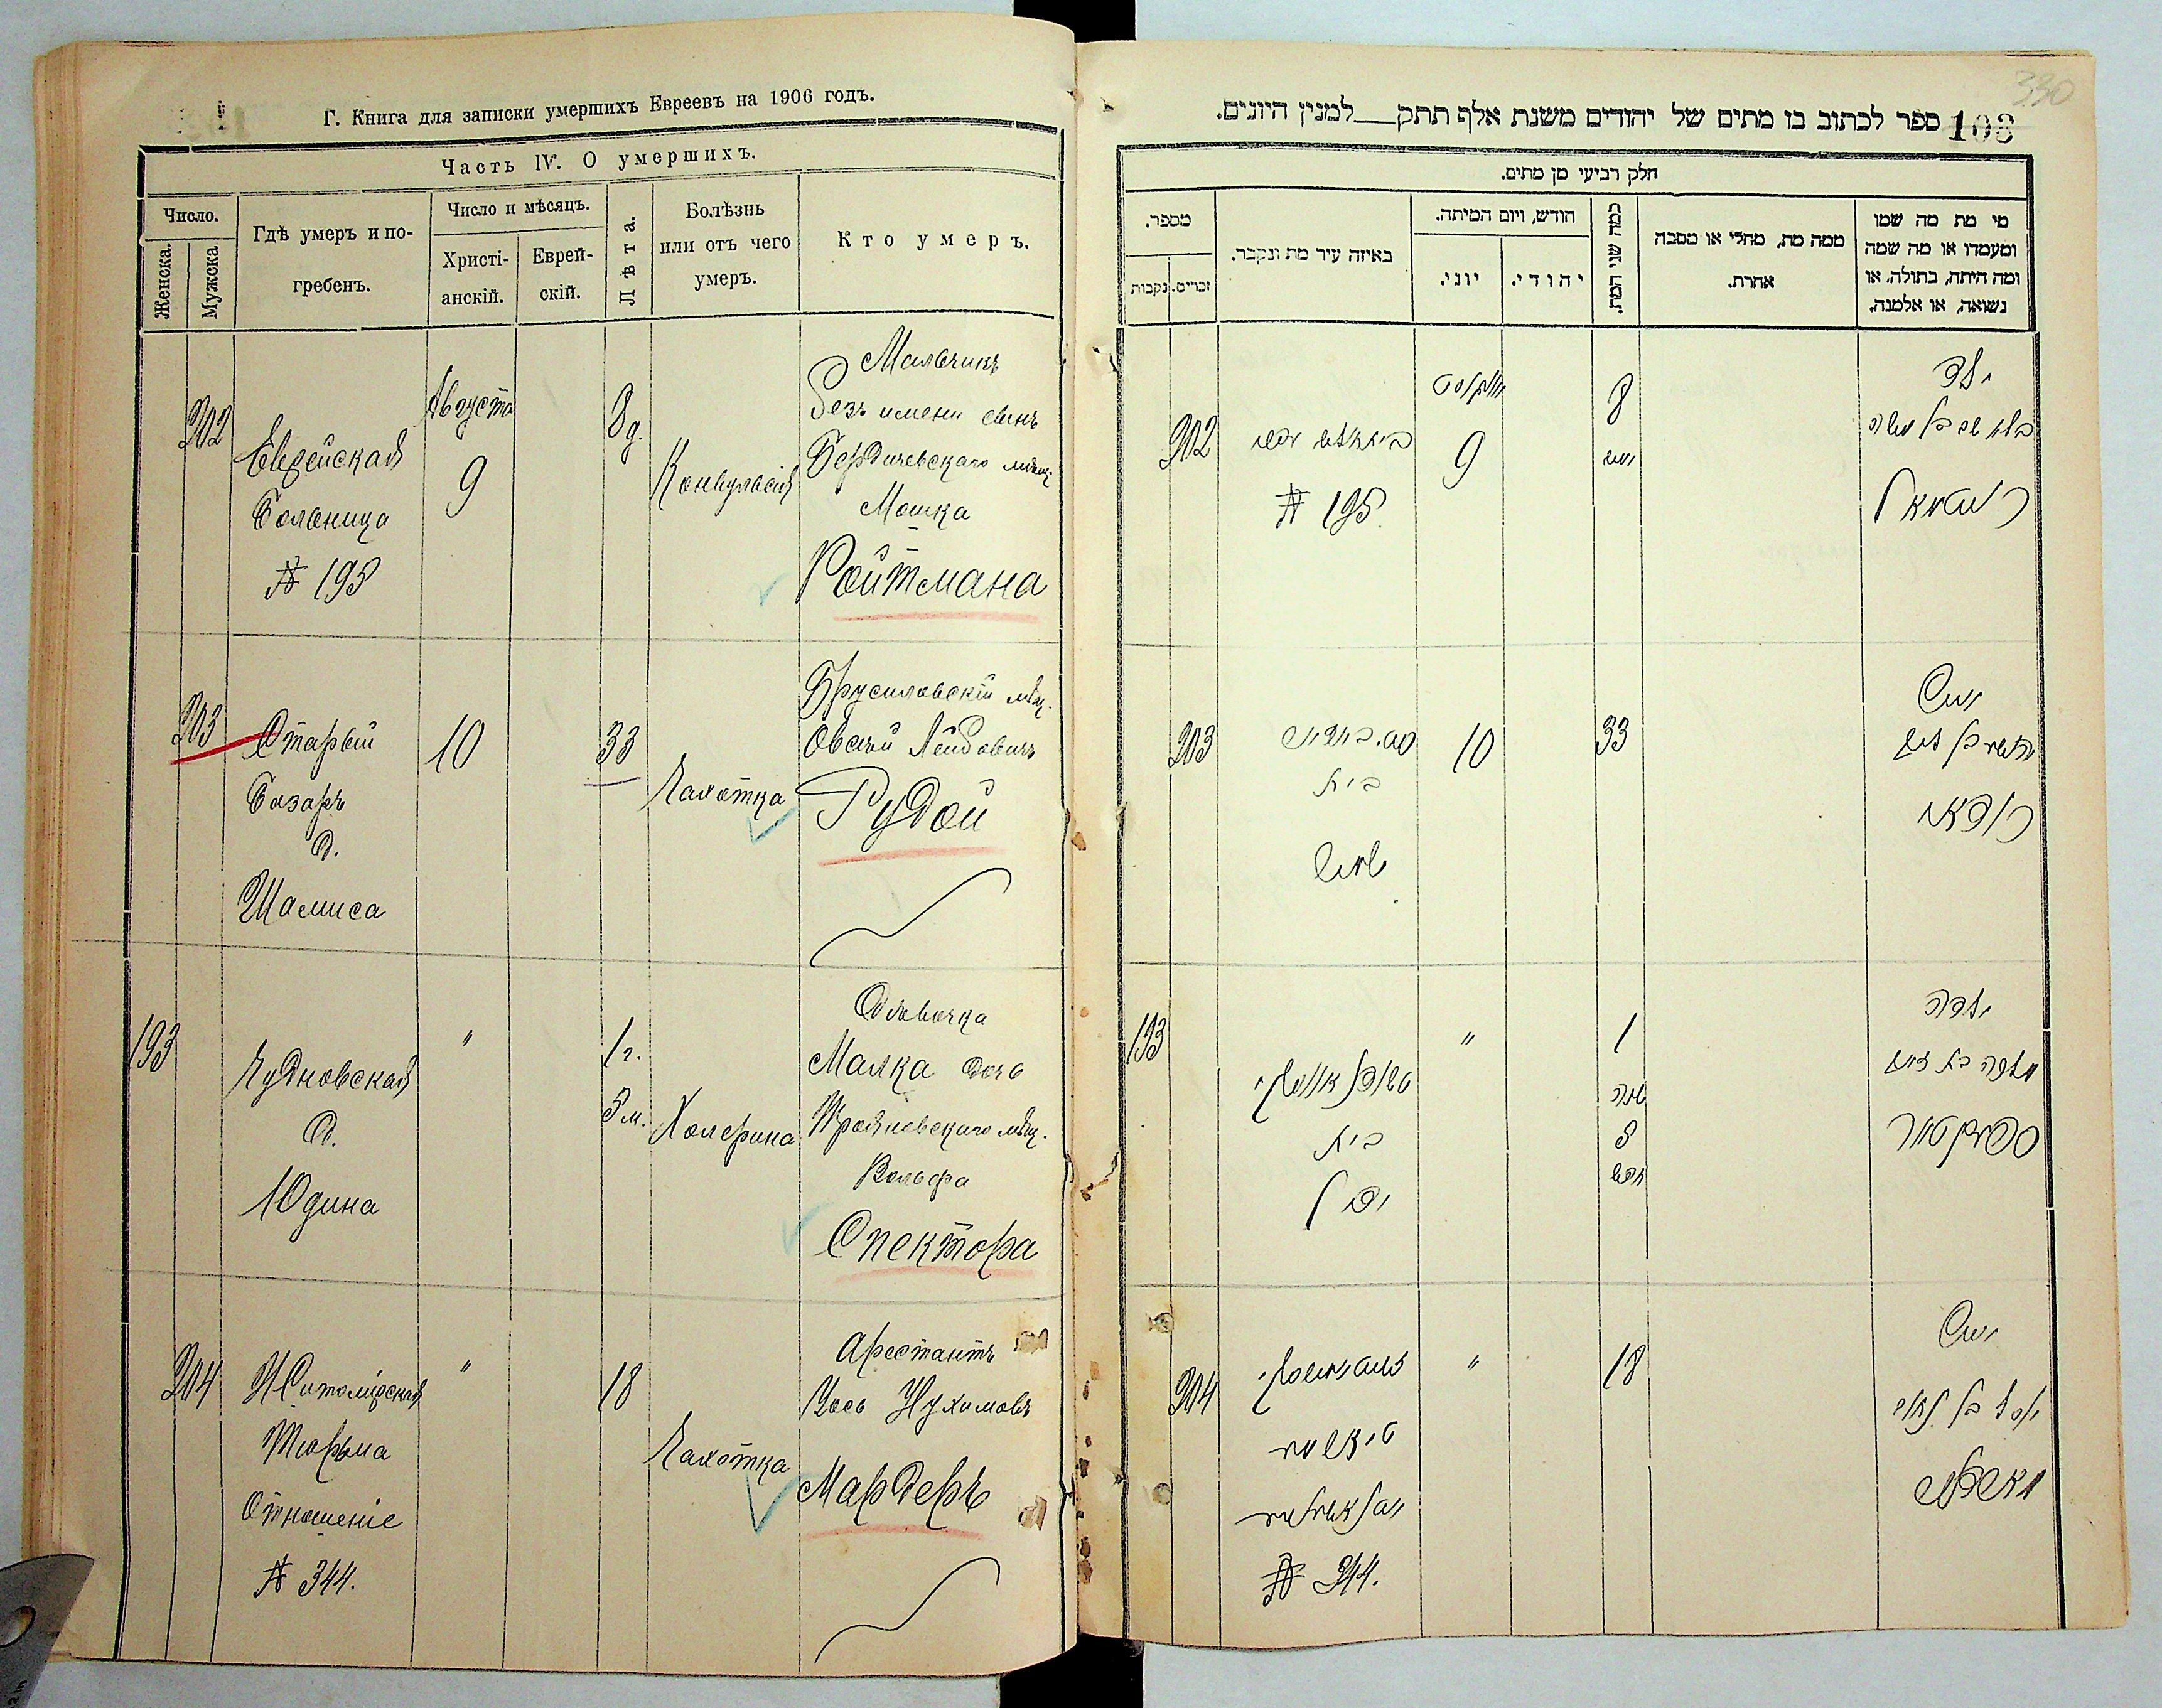 Г. Книга для записки умершихъ Евреевъ на 1906 годъ.
Часть IV. О умершихъ.
Число.
Женска.
Мужска
Гдѣ умеръ и по-
гребенъ.
Число и мѣсяцъ.
Христі-
анскій.
Еврей-
скій.
Лѣта.
Болѣзнь
или отъ чего
умеръ.
Кто умеръ.
202
Еврейская
Больница
№ 195
Августа
9
8 д.
Конвульсія
Мальчикъ
безъ имени сынъ
Бердичевскаго мѣщ.
Мошка
Ройтмана
203
Старый
Базаръ
д.
Шамиса
10
33
Чахотка
Брусиловскій мѣщ.
Овшій Лейбовичъ
Рудой
193
Чудновская
д.
Юдина
"
1 г.
5 м.
Холерина
Дѣвочка
Малка дочь
Трояновскаго мѣщ.
Вольфа
Спектора
204
Житомірская
Тюрьма
Отношеніе
№ 344.
"
18
Чахотка
Арестантъ
Іось Нухимовъ
Мардеръ
330
108
ספר לכתוב בו מתים של יהודים משנת אלף תתק__למנין היונים.
חלק רביעי מן מתים.
מספר.
זכרים.
נקבות
באיזה עיר מת ונקבר.
חודש, ויום המיתה.
יוני.
יהודי.
כמה שני המת.
ממה מת, מחלי או מסבה
אחרת.
מי מת מה שמו
ומעמדו או מה שמה
ומה היתה, בתולה, או
נשואה, או אלמנה.
202
№ 195
9
8
ילד
רויטמאן
203
בית
10
33
איש
רודאי
193
בית
"
1
שנה
5
חדש
ילדה
מלכה בת
ספעקטאר
204
№ 344.
"
18
איש
מארדער